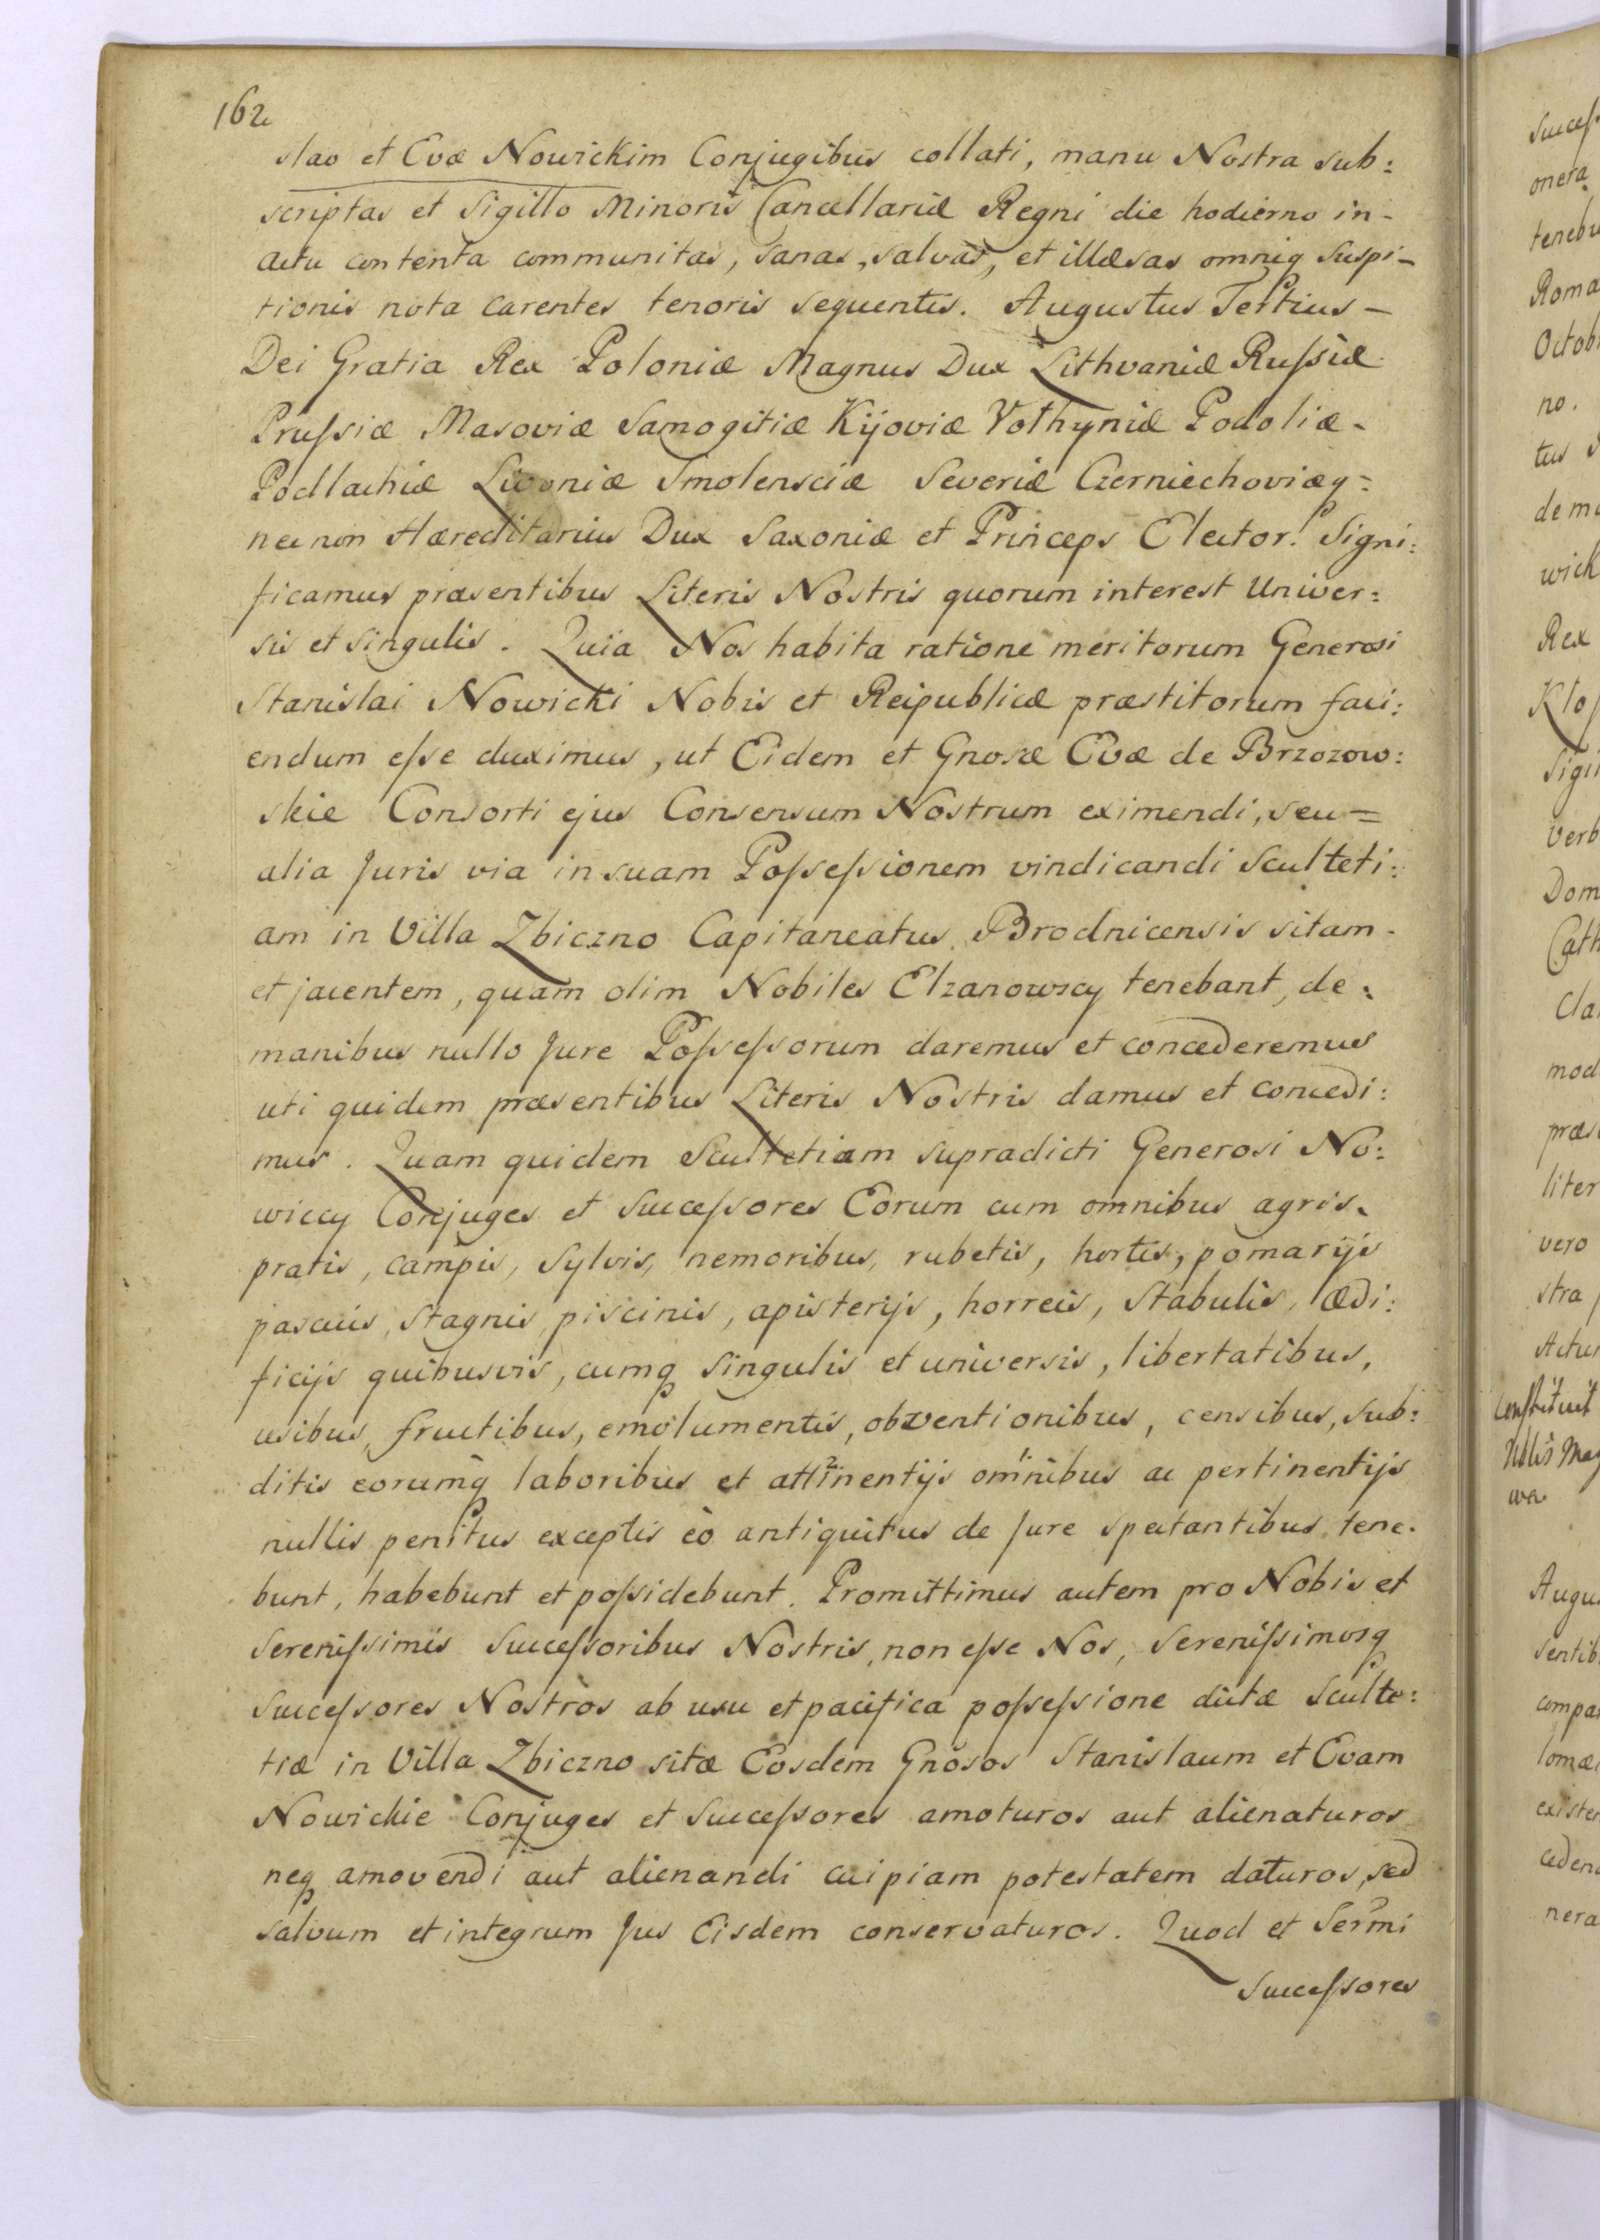 162
slao et Evæ Nowickim Conjugibus collati, manu Nostra sub:
scriptas et Sigillo Minoris Cancellariæ Regni die hodierno in-
actu contenta communitas, sanas, salvas, et illæsas omniq suspi-
tionis nota carentes tenoris sequentis. Augustus Tertius -
Dei Gratia Rex Poloniæ Magnus Dux Lithvaniæ Rußiæ
Prußiæ Masoviæ Samogitiæ Kijoviæ Volhyniæ Podoliæ -
Podlachiæ Livoniæ Smolensciæ Severiæ Czerniechoviæq =
necnon Hæreditarius Dux Saxoniæ et Princeps Elector. Signi:
ficamus præsentibus Literis Nostris quorum interest Univer:
sis et singulis. Quia Nos habita ratione meritorum Generosi
Stanislai Nowicki Nobis et Reipublicæ præstitorum faci:
endum eße duximus, ut Eidem et Gnosæ Evæ de Brzozow:
skie Consorti ejus Consensum Nostrum eximendi, seu =
alia Juris via in suam Poßeßionem vindicandi Sculteti:
am in Villa Zbiczno Capitaneatus Brodnicensis sitam -
et jacentem, quam olim Nobiles Elzanowscy tenebant, de:
manibus nullo Jure Poßeßorum daremus et concederemus
uti quidem præsentibus Literis Nostris damus et concedi:
mus. Quam quidem Scultetiam supradicti Generosi No:
wiccy Conjuges et Succeßores Eorum cum omnibus agris,
pratis, campis, Sylvis, nemoribus, rubetis, hortis, pomarijs
pascuis, Stagnis, piscinis, apisterijs, horreis, Stabulis, ædi:
ficijs quibusvis, cumq singulis et universis, libertatibus,
usibus, fructibus, emolumentis, obventionibus, censibus, sub:
ditis eorumq laboribus et attinentijs omnibus ac pertinentijs
nullis penitus exceptis eò antiquitus de Jure spectantibus tene:
bunt, habebunt et poßidebunt. Promittimus autem pro Nobis et
Serenißimis Succeßoribus Nostris, non eße Nos, Serenißimosq
Succeßores Nostros ab usu et pacifica poßeßione dictæ Sculte:
tiæ in Villa Zbiczno sitæ Eosdem Gnosos Stanislaum et Evam
Nowickie Conjuges et Succeßores amoturos aut alienaturos
neq amovendi aut alienandi cuipiam potestatem daturos, sed
salvum et integrum Jus Eisdem conservaturos. Quod et Sermi
Succeßores